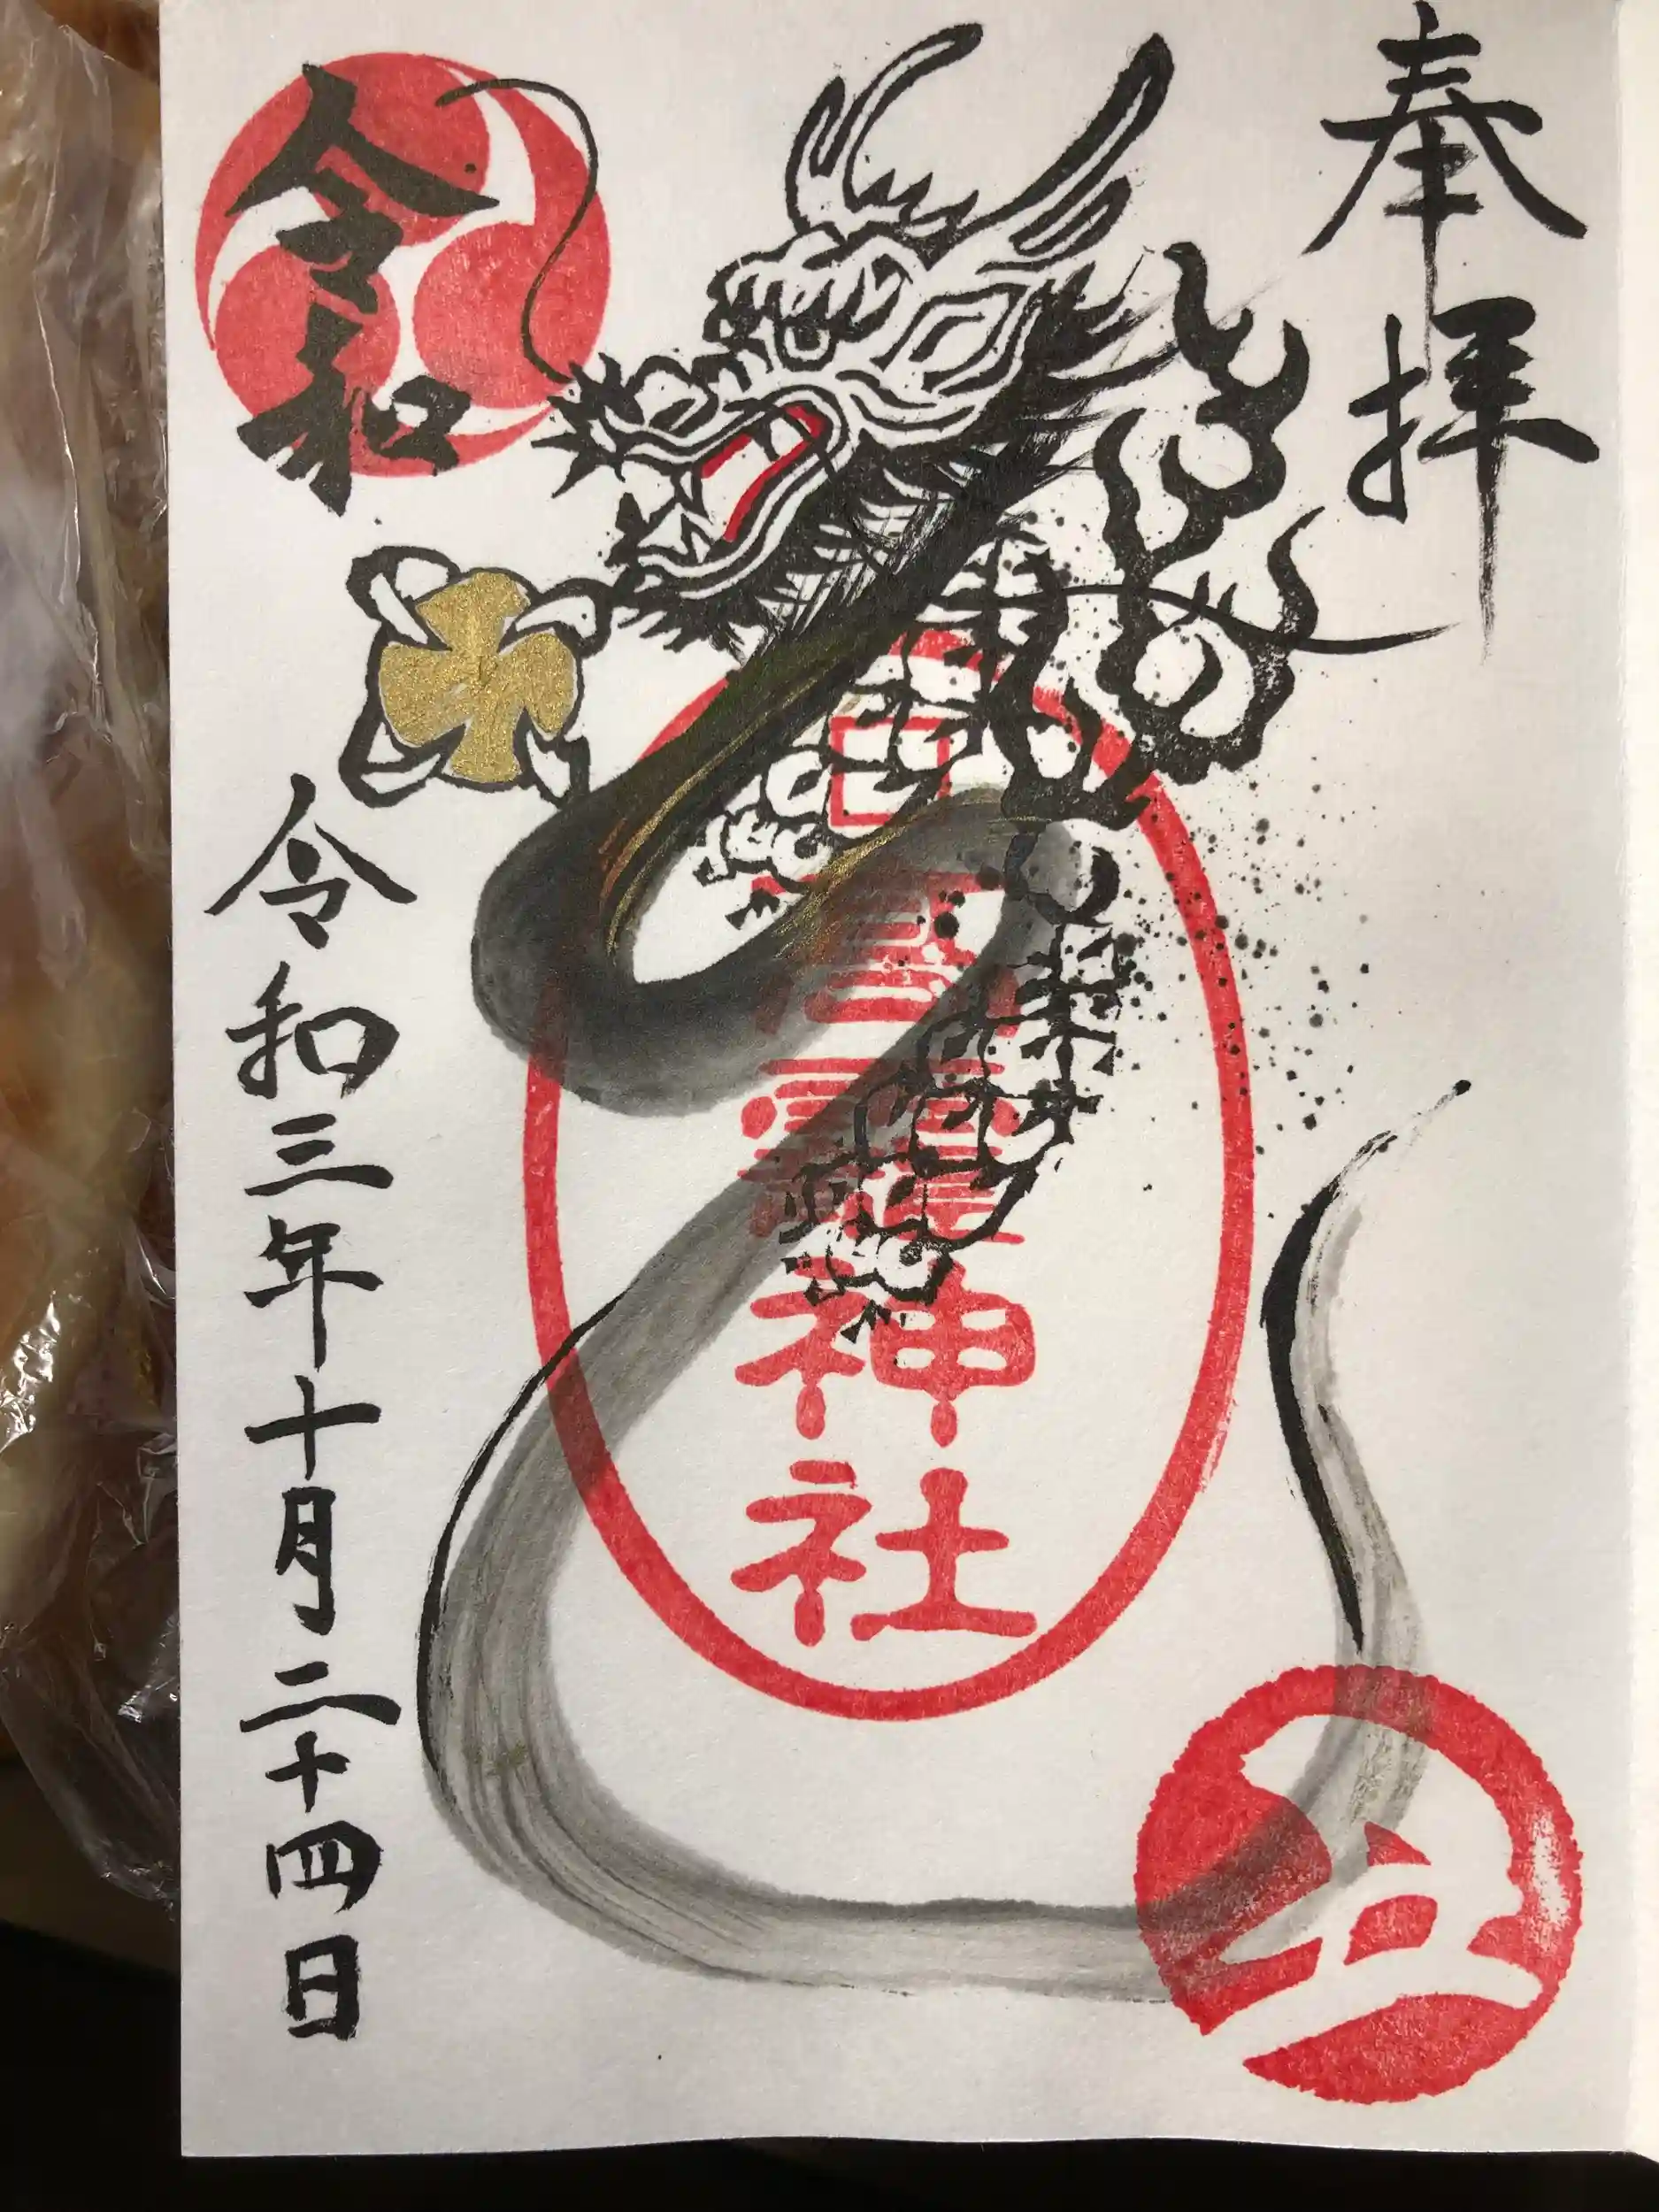 奉拝
神社
令和
令和三年十月二十四日